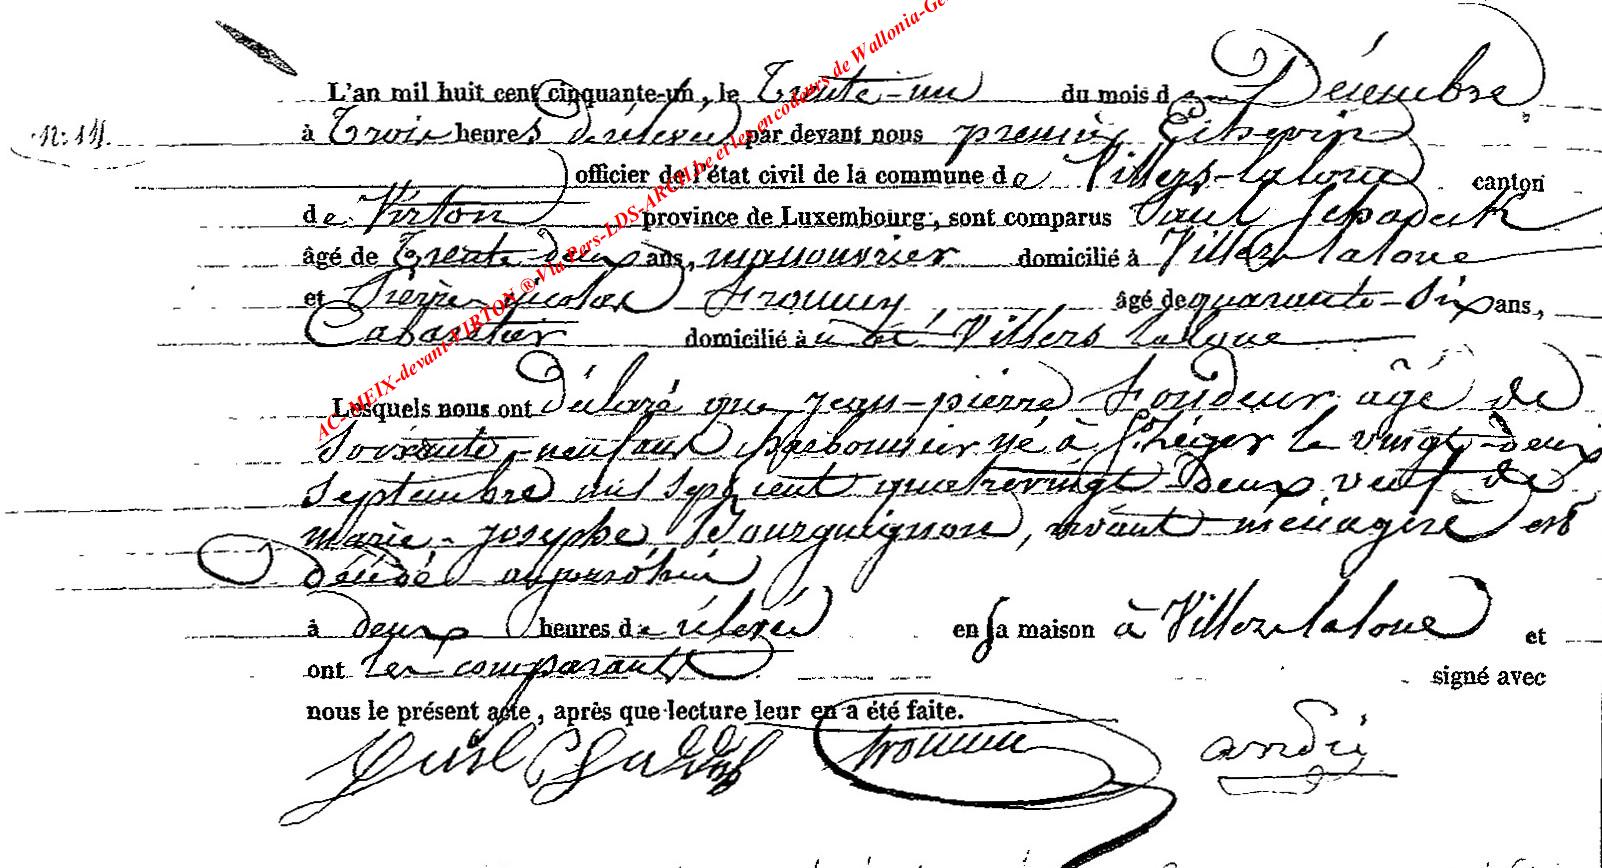 L'an mil huit cent cinquante-un, le Trente-un du mois de Décembre
N: 14.
à Trois heures de relevée par devant nous premier Echevin
officier de l'état civil de la commune de Villers-laloue canton
de Virton province de Luxembourg, sont comparus Paul Schadeck
âgé de Trente-deux ans, manouvrier domicilié à Villers laloue
et Pierre-Nicolas Froumy âgé de quarante-six ans,
Cabaretier domicilié à Villers laloue
Lesquels nous ont déclaré que jean-pierre Fondeur âgé de
soixante-neuf ans charbonnier né à St. Léger le vingt-deux
septembre mil sept cent quatrevingt-deux veuf de
marie-josephe Bourguignon, vivant ménagère est
décédé aujourd'hui
à deux heures de relevée en sa maison à Villers laloue et
ont les comparants signé avec
nous le présent acte, après que lecture leur en a été faite.
AC-MEIX-devant-VIRTON ® Via Pers-LDS-ARCH.be et les encodeurs de Wallonia-Ge